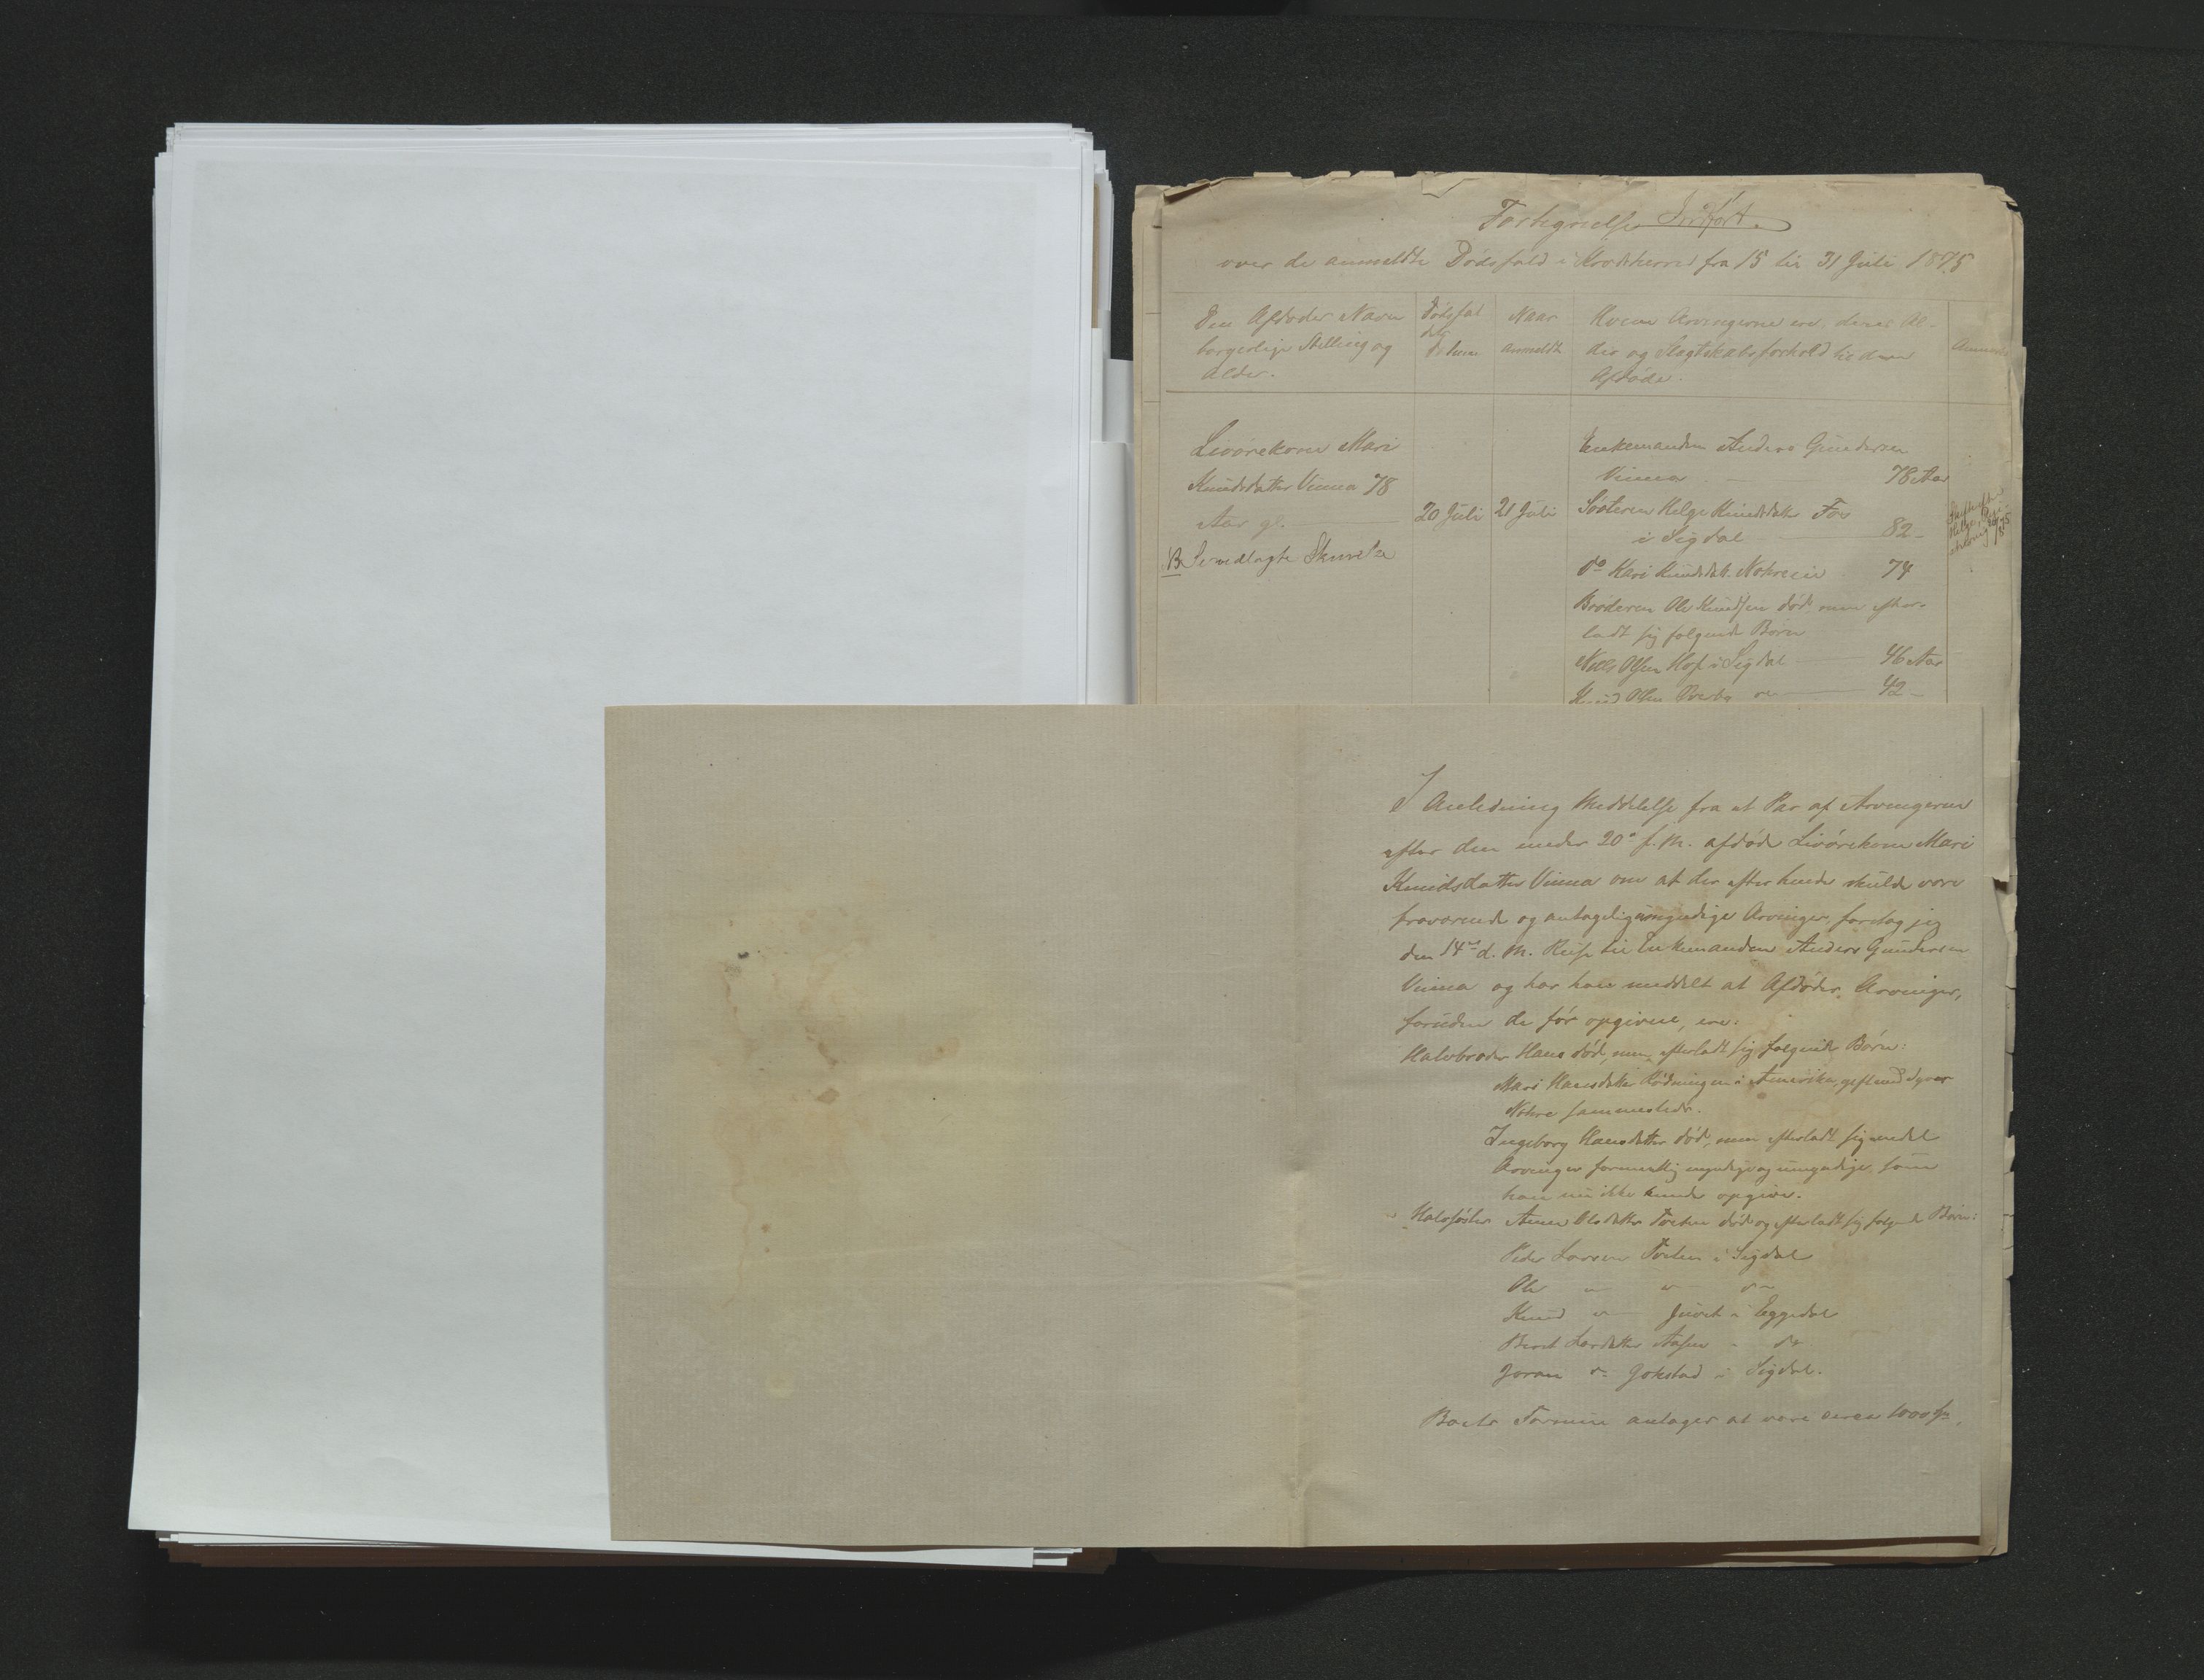 Fortegnelse Indført.
over de anmeldte Dødsfald i Krødsherred fra 15 til 31 Juli 1875
Den Afdødes Navn
borgerlige Stilling og
Alder.
Dødsfal
dets
Datum
Naar
anmeldt
Hvem Arvingerne ere, deres Al-
der og Slægtskabsforhold til den
Afdøde.
Livørekone Mari
Knudsdatter Vinna 78
Aar gl.
20 Juli
21 Juli
NB Se vedlagte Skrivelse
Enkemanden Anders Gundersen
Vinna 78 Aar
Søsteren Helge Knudsdatter
i Sigdal 82 -
do Kari Knudsdatt. Nohre 74
Broderen Ole Knudsen død, men efter-
ladt sig følgende Børn
Nils Olsen Hof i Sigdal 46 Aar
Knud Olsen 42 -
I Anledning Meddelelse fra et Par af Arvingerne
efter den under 20de f. M. afdøde Livørekone Mari
Knudsdatter Vinna om at der efter hende skulde være
fraværende og antagelig umyndige Arvinger, foretog jeg
den 14de d. M. Reise til Enkemanden Anders Gundersen
Vinna og har han meddelt at Afdødes Arvinger,
foruden de før opgivne, ere:
Halvbroder Hans død, men efterladt sig følgende Børn:
Mari Hansdatter Rødningen i Amerika, gift med Syver
Nohre sammesteds.
Ingeborg Hansdatter død, men efterladt sig endel
Arvinger formentlig myndige og umyndige, som
han nu ikke kunde opgive.
Halvsøster Anne Olsdatter død og efterladt sig følgende Børn:
Peder Larsen i Sigdal
Ole
Knud Juvet i Eggedal
Berit Larsdatter Aasen - do
Joran do Gokstad i Sigdal.
Boets Formue antages at være circa 1000